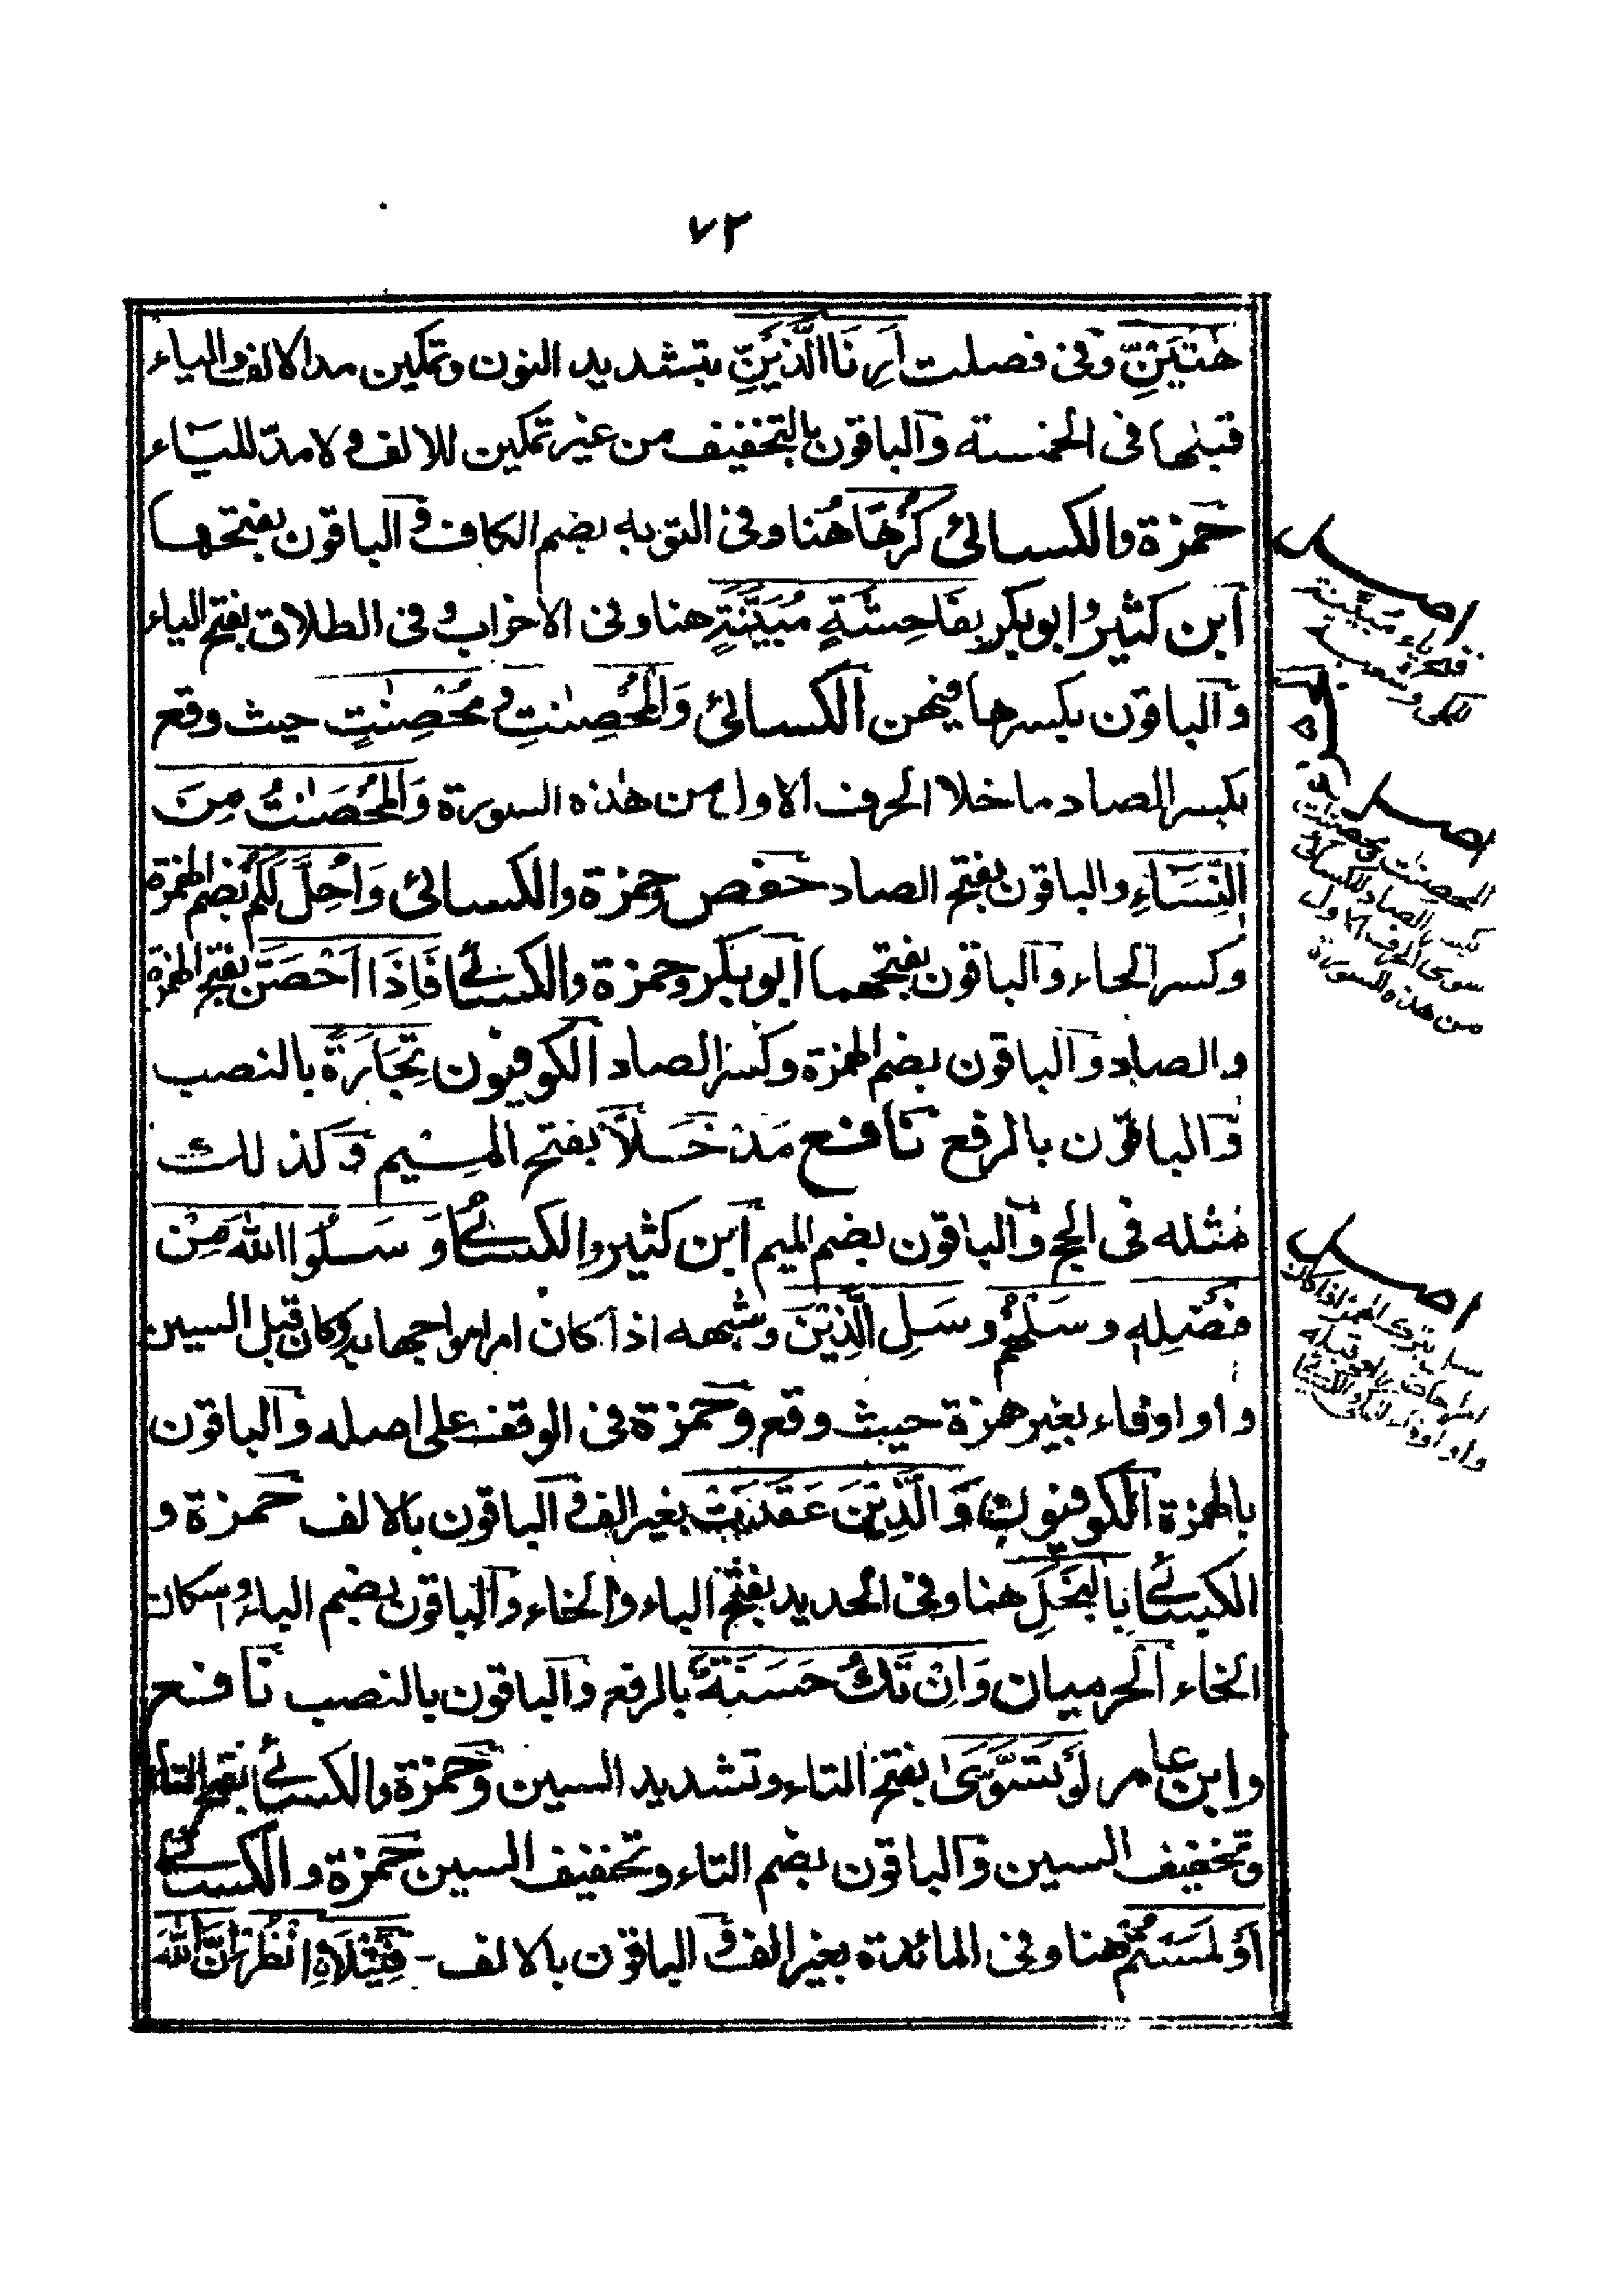 ٧٢
هٰتَيْنِّ وفى فصلت اَرِنَا الَّذَيْنِّ بتشديد النون وتمكين مد الالف والياء
قبلها فى الخمسة والباقون بالتخفيف من غير تمكين للالف ولا مدّ للياء
حمزة والكسائى كُرْهًا هُنا وفى التوبه بضم الكاف والباقون بفتحها
ابن كثير وابوبكر بِفَاحِشَةٍ مُبَيَّنَةٍ هنا وفى الاحزاب وفى الطلاق بفتح الياء
والباقون بكسرها فيهن الكسائى وَالْمُحْصِنٰتِ و مُحْصِنٰتٍ حيث وقع
بكسر الصاد ما خلا الحرف الاول من هذه السورة وَالْمُحْصَنٰتُ مِنَ
النِّسَاءِ والباقون بفتح الصاد حفص وحمزة والكسائى وَاُحِلَّ لَكُمْ بضم الهمزة
وكسر الحاء والباقون بفتحهما ابوبكر وحمزة والكسائى فَاِذَا اَحْصَنَّ بفتح الهمزة
والصاد والباقون بضم الهمزة وكسر الصاد الكوفيون تِجَارَةً بالنصب
والباقون بالرفع نافع مَدْخَلًا بفتح الميم وكذلك
مثله فى الحج والباقون بضم الميم ابن كثير والكسائى وَسَلُوا اللّٰهَ مِنْ
فَضْلِهِ و سَلْهُمْ و سَلِ الَّذِيْنَ وشبهه اذا كان امرا مواجها به وكان قبل السين
واو او فاء بغير همزة حيث وقع وحمزة فى الوقف على اصله والباقون
بالهمزة الكوفيون وَالَّذِيْنَ عَقَدَتْ بغير الف والباقون بالالف حمزة و
الكسائى بِالْبَخَلِ هنا وفى الحديد بفتح الباء والخاء والباقون بضم الباء واسكان
الخاء الحرميان وَاِنْ تَكُ حَسَنَةٌ بالرفع والباقون بالنصب نافع
وابن عامر لَوْ تَسَّوّٰى بفتح التاء وتشديد السين وحمزة والكسائى بفتح التاء
وتخفيف السين والباقون بضم التاء وتخفيف السين حمزة والكسائى
اَوْ لَمَسْتُمْ هنا وفى المائدة بغير الف والباقون بالالف - فَتِيْلَاِ انْظُرْ اِنَّ اللّٰهَ
اصل
مبيّنة
اصل
المحصنٰت محصنٰت
بكسر الصاد للكسائى
سوى الحرف الاول
من هذه السورة
اصل
سل بترك الهمز اذا كان
امرا وقبله
واو او فاء